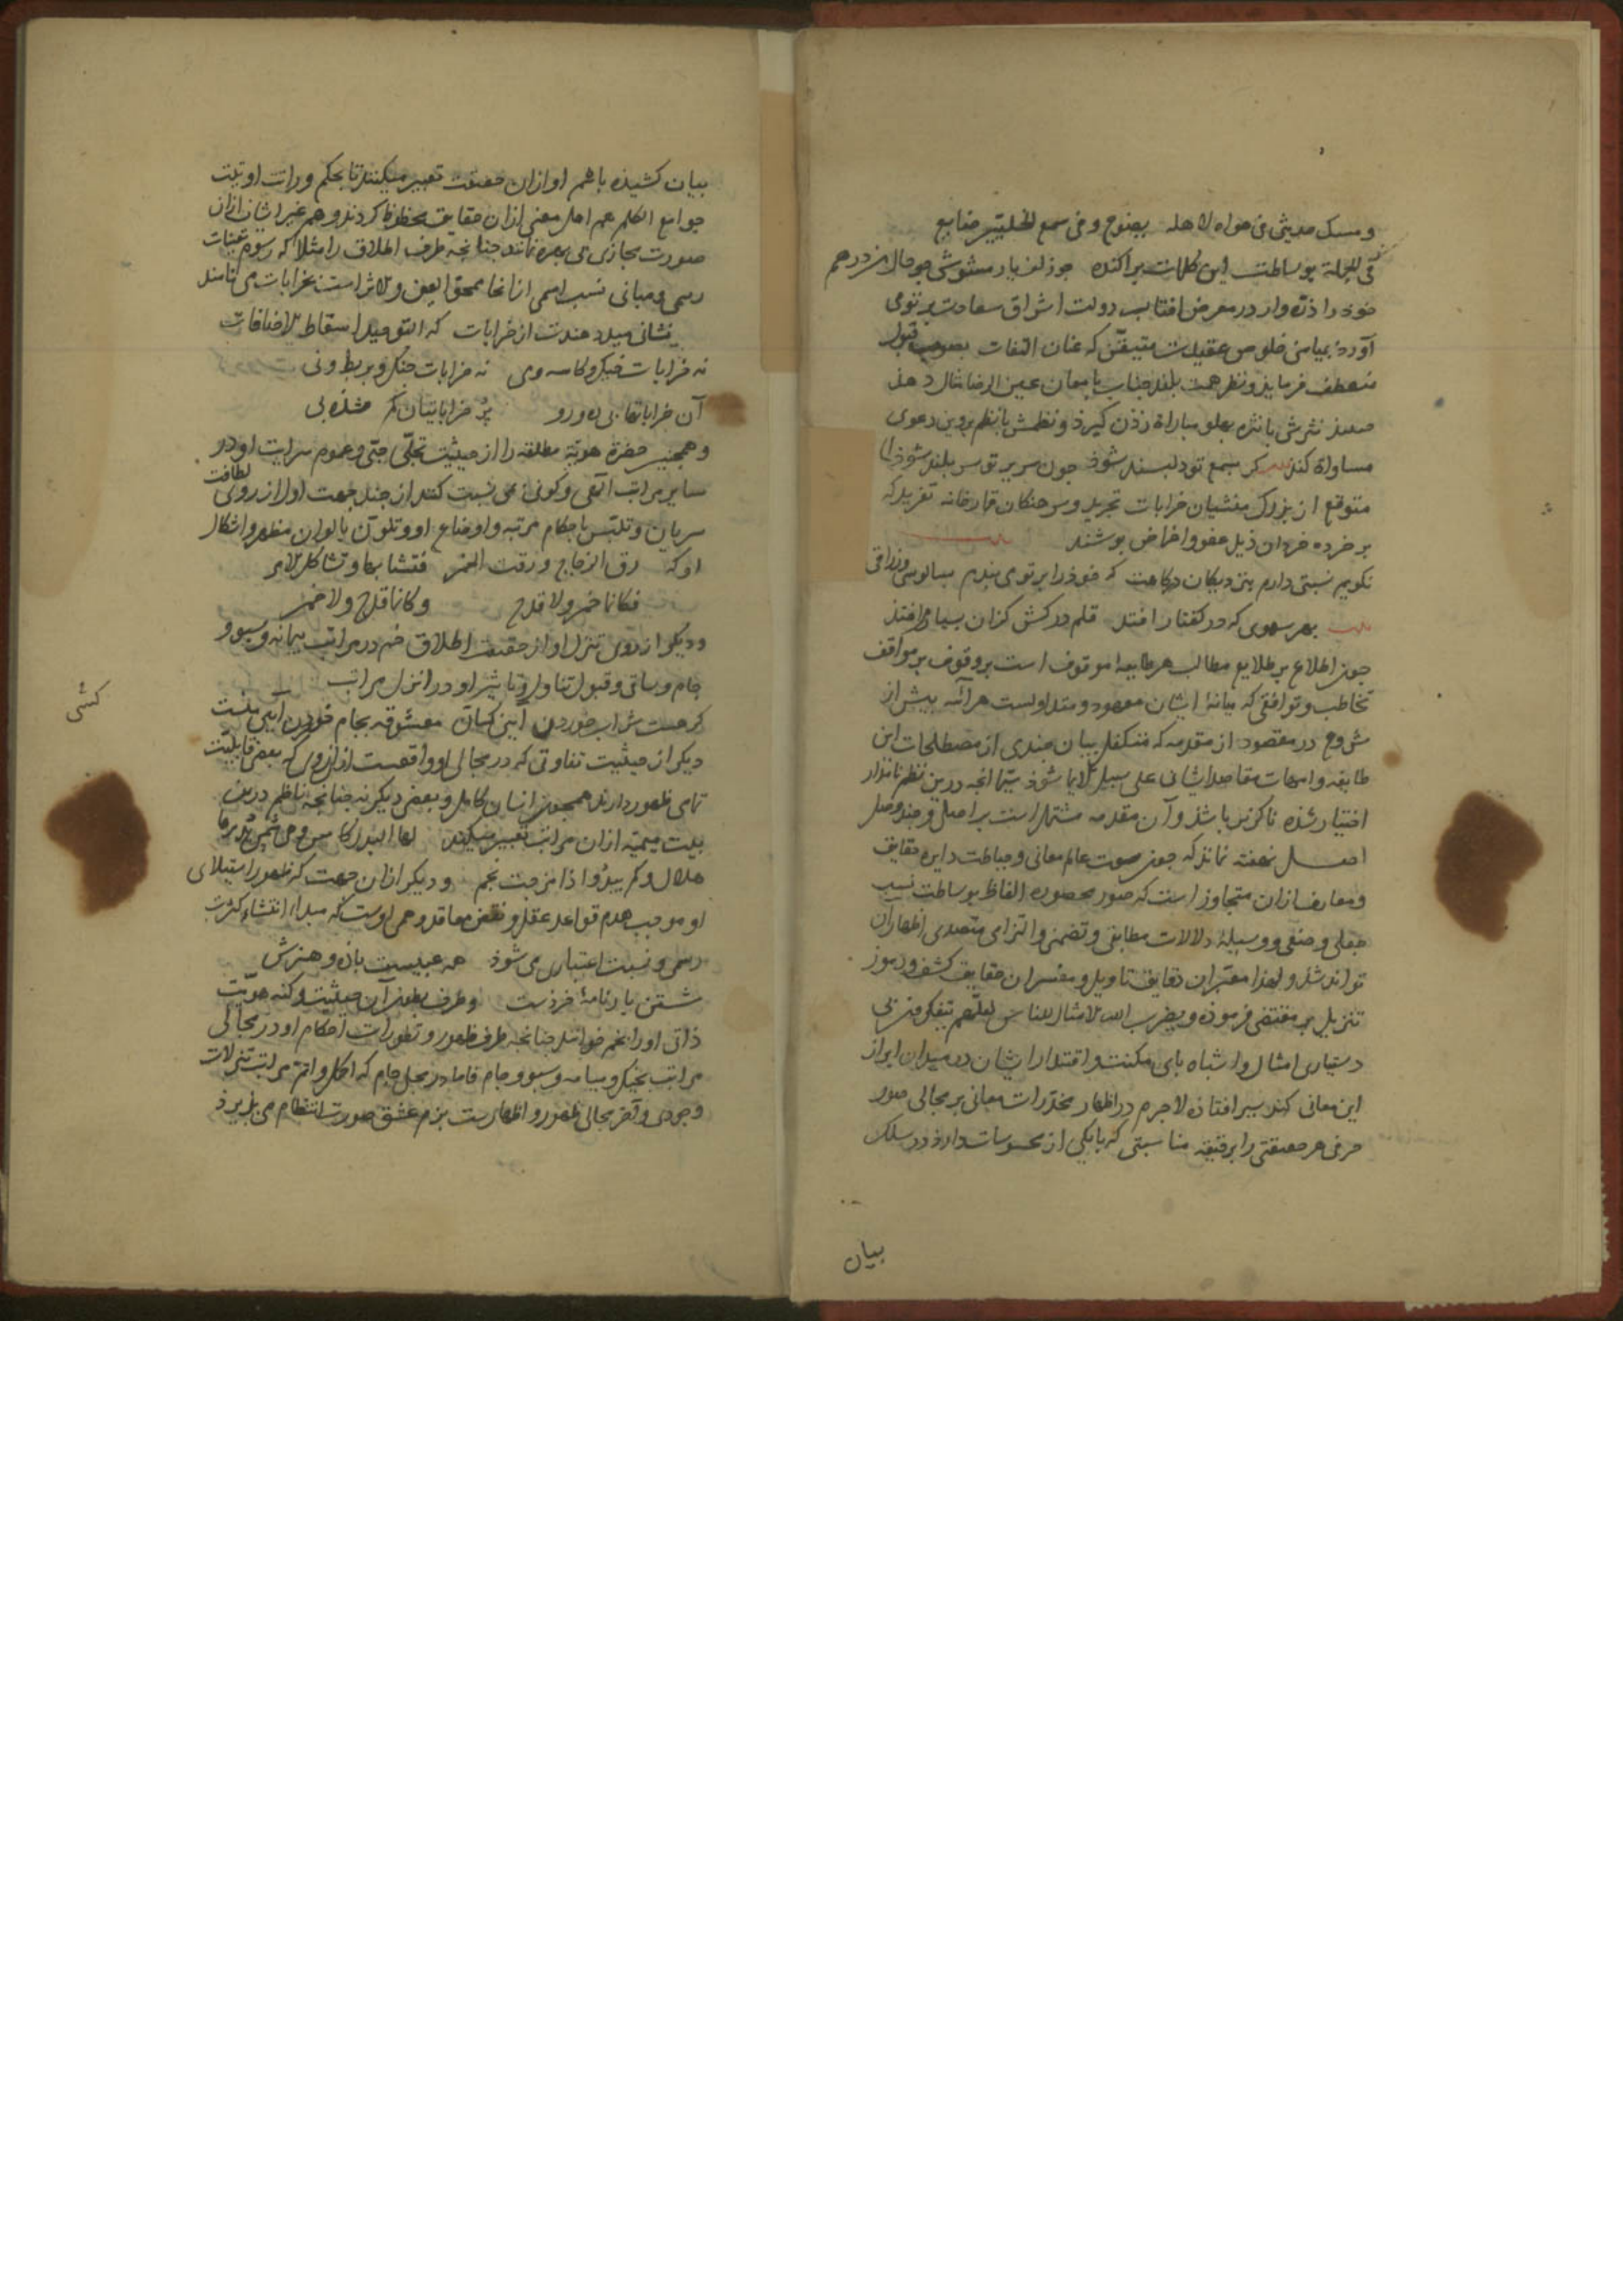 و مسک حدیثی فی هواه لاهله یضوع و فی سمع الخلیین ضایع
فی الجملة بوساطت این کلمات پراکنده چو زلف یار مشوش چو حال من درهم
خود را ذره وار در معرض افتاب دولت اشراق سعادت پرتوی
آورد بمیامن خلوص عقیدت متیقن که عنان التفات بصوب قبول
منعطف فرماید و نظر همت بلند جناب بامعان عین الرضا مثال دهذ
نثرش بانثره بعلو مباراة زدن کیرد و نظمش بانظم پروین دعوی
مساواة کند کر بسمع تو دلبسند شود چون سریر توس بلند شود
متوقع از بزرک منشیان خرابات تجرید و سوختکان قمارخانه تفرید که
بر خرده خردان ذیل عفو و اغماض بوشند
نکویم نسبتی دارم بنزدیکان درکاهت که خود را بر تو می بندم بسالوسی و زراقی
بهر سهوی که در کفتار افتد قلم درکش کزان بسیار افتد
چون اطلاع بر طلایع مطالب هر طایفه موقوف است بر وقوف بر مواقف
تخاطب و توافقی که میانهٔ ایشان معهود و متداولست هر آئنه بیش از
شروع در مقصود از مقدمه که متکفل بیان چندی از مصطلحات این
طایفه و امهات مقاصد ایشان علی سبیل الایما شود سیما انچه درین نظم نامدار
اختیار شده ناکزیر باشد و آن مقدمه مشتمل است بر اصلی و چند وصل
اصل نهفته نماند که چون صوت عالم معانی و حیاطت دایره حقایق
و معارف ازان متجاوز است که صور محصوره الفاظ بوساطت نسب
جعلی و صنعی و وسیلهٔ دلالات مطابقی و تضمنی و التزامی متصدی اظهار ان
تواند شد و لهذا معبران دقایق تاویل و مفسران حقایق کشف و رموز
تنزیل بر مقتضی فرموده و یضرب الله الامثال للناس لعلهم یتفکرون بی
دستیاری امثال و اشباه بای مکنت و اقتدار ایشان در میدان ابراز
این معانی کند سیر افتاده لاجرم در اظهار مخدرات معانی بر مجالی صور
حرفی هر حقیقتی را برقیقه مناسبتی که با یکی از محسوسات دارد در سلک
بیان
بیان کشیده باسم او ازان حقیقت تعبیر میکنند تا بحکم وراثت اوتیت
جوامع الکلم هم اهل معنی ازان حقایق محظوظ کردند و هم غیر ایشان ازان
صورت مجازی بی بهره نمانند چنانچه طرف اطلاق را مثلا که رسوم تعینات
رسمی و مبانی نسب اسمی از انجا ممحو العین و الاثر است بخرابات می نامند
نشانی میدهندت از خرابات که التوحید اسقاط الاضافات
نه خرابات خیک و کاسه و می نه خرابات چنک و بربط و نی
آن خراباتها بی ره و رو پر خراباتیان کم شده بی
و همچنین حضرة هویة مطلقه را از حیثیت تجلی حبی و عموم سرایت او در
سایر مراتب آلهی و کونی بمی نسبت کنند از چند جهت اول از روی لطافت
سریان و تلبس باحکام مرتبه و اوضاع او و تلون بالوان مظهر و اشکال
او که رق الزجاج و رقت الخمر فتشابها و تشاکل الامر
فکانما خمر و لا قدح و کانما قدح و لا خمر
و دیکر از روی تنزل او از حقیقت اطلاق خم در مراتب بیمانه و سبو و
جام و ساقی و قبول تناول و تاثیر او در انزل مراتب
کر هست شراب خوردن آیین کسان معشوقه بجام خوردن آیین منست
دیکر از حیثیت تفاوتی که در مجالی او واقعست ازان روی که بعضی قابلیت
تمامی ظهور دارند همچون انسان کامل و بعضی دیکر نه چنانچه ناظم درین
بیت میمیه ازان مراتب تعبیر میکند لها البدر کاس و هی شمس یدیرها
هلال و کم یبدو اذا مزجت نجم و دیکر ازان جهت که ظهور استیلای
او موجب هدم قواعد عقل و نقض معاقد وهمی اوست که مبداء انتشاء کثرت
رسمی و نسبت اعتباری می شود هر عیبست باده و هنرش
شستن بارنامهٔ خردست و طرف بطون آن حیثیت و کنه هویت
ذاتی او را بخم خوانند چنانچه طرف ظهور و تطورات احکام او در مجالی
مراتب بخیک و پیاله و سبو و جام فاما در مجلی جام که اکمل و اتم مراتب تنزلات
وجودی و آخر مجالی ظهور و اظهارست بزم عشق صورت انتظام می بذیرد
کشی